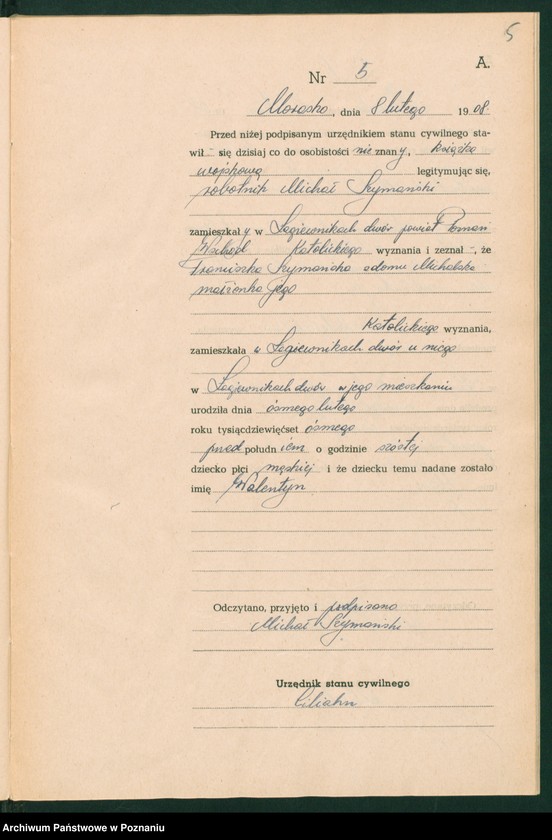 5
A.
Nr 5
Morasko, dnia 8 lutego 1908.
Przed niżej podpisanym urzędnikiem stanu cywilnego sta-
wił - się dzisiaj co do osobistości nieznany, książką
wojskową legitymując się,
robotnik Michał Szymański
zamieszkały w Łagiewnikach dwór powiat Poznań
Wschód Katolickiego wyznania i zeznał -, że
Franciszka Szymańska z domu Michalska
małżonka jego
Katolickiego wyznania,
zamieszkała w Łagiewnikach dwór u niego
w Łagiewnikach dwór w jego mieszkaniu
urodziła dnia ósmego lutego
roku tysiącdziewięćset ósmego
przed południem o godzinie szóstej
dziecko płci męskiej i że dziecku temu nadane zostało
imię Walentyn.
Odczytano, przyjęto i podpisano
Michał Szymański
Urzędnik stanu cywilnego
Archiwum Państwowe w Poznaniu